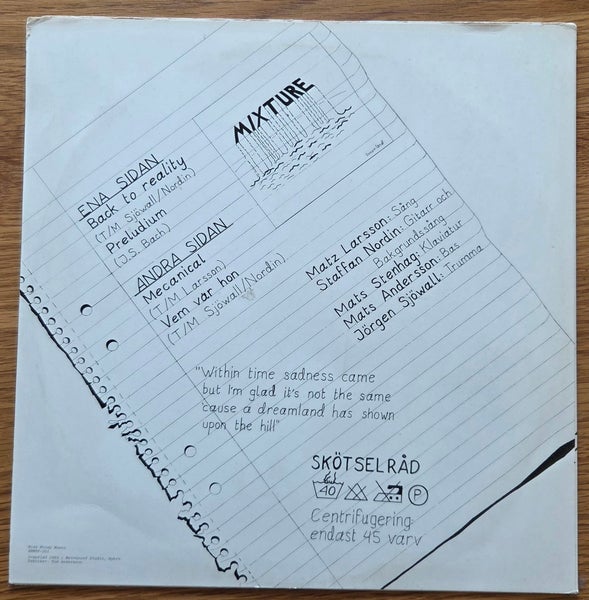 MIXTURE
ENA SIDAN
Back to reality
(T/M Sjöwall/Nordin)
Preludium
(J.S. Bach)
ANDRA SIDAN
Mecanical
(T/M Larsson)
Vem var hon
(T/M Sjöwall/Nordin)
Matz Larsson: Sång
Staffan Nordin: Gitarr och
Bakgrundssång
Mats Stenhag: Klaviatur
Mats Andersson: Bas
Jörgen Sjöwall: Trumma
"Within time sadness came
but I'm glad it's not the same
'cause a dreamland has shown
upon the hill"
SKÖTSELRÅD
40
P
Centrifugering
endast 45 varv
Music
Studio,